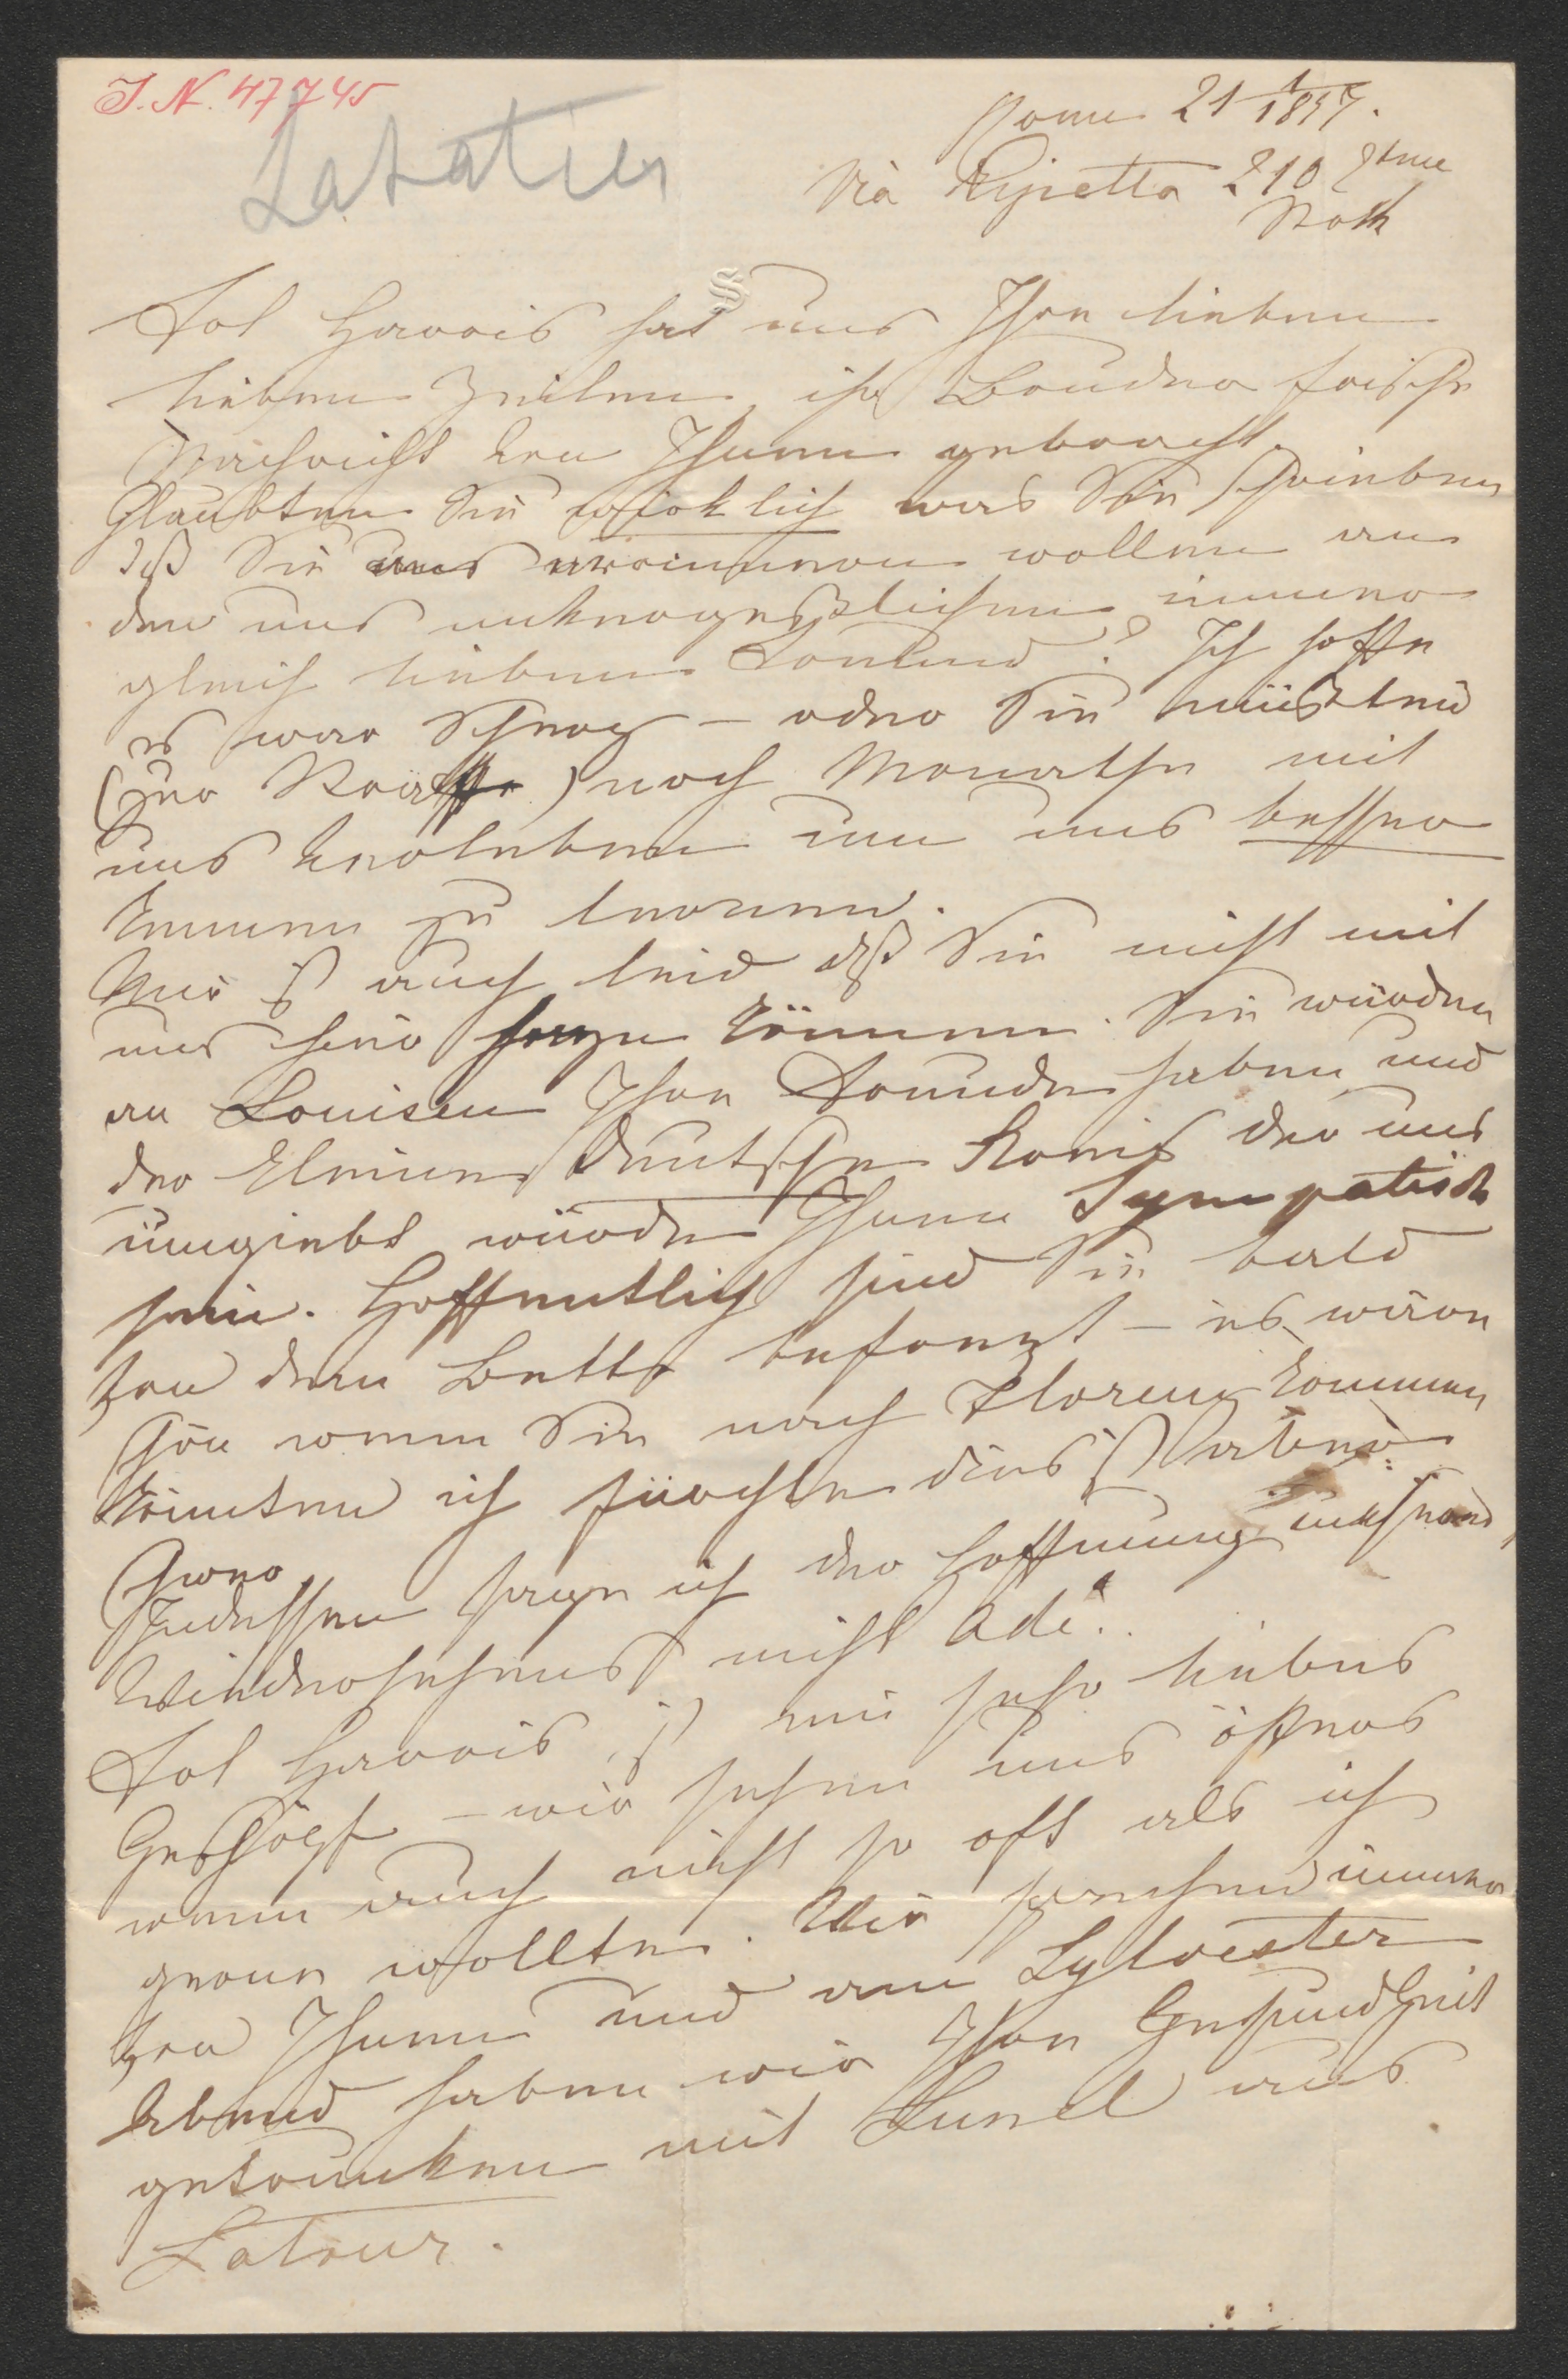 I. N. 47745
Latatier
Rome 21 1/1897.
Via Ripetta 210 2tme
Roth
Frl Harris hat uns Ihre lieben
lieben Zeilen, ihr Bruder frische
Nachricht von Ihnen gebracht.
Glaubten Sie wirklich was Sie schrieben
daß Sie uns erinnern wollen an
den uns unvergeßlichen immer
gleich lieben Freund? Ich hoffe
es war Scherz – oder Sie müßten
(zur Strafe) noch Monathe mit
uns verleben um uns besser
kennen zu lernen.
Mir ist auch leid daß Sie nicht mit
uns hier können. Sie würden
an Louisen Ihre Freude haben und
der kleine deutsche Kreis der uns
umgiebt würde Ihnen Sympatisch
sein. Hoffentlich sind Sie bald
von dem Bette befreit – es wäre
schön wenn Sie nach Florenz kommen
könnten ich fürchte dies ist aber
schwer
Indessen sage ich der Hoffnung
Wiedersehens nicht Adé!
Frl Harris ist ein sehr liebes
Geschöpf – wir sehen uns öfters
wenn auch nicht so oft als ich
gerne wollte. Wir sprechen immer
von Ihnen und am Sylvester
Abend haben wir Ihre Gesundheit
getrunken mit Lunel aus
Latour.